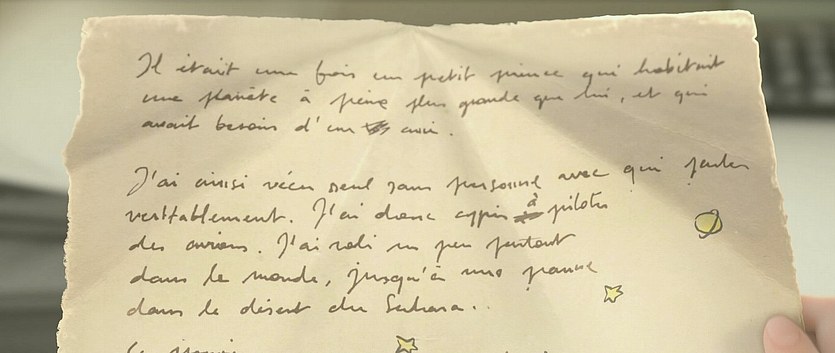 Il était une fois un petit prince qui habitait
une planète à peine plus grande que lui, et qui
avait besoin d'un ami.
J'ai ainsi vécu seul sans personne avec qui parler
véritablement. J'ai donc appris à piloter
des avions. J'ai volé un peu partout
dans le monde, jusqu'à une panne
dans le désert du Sahara..